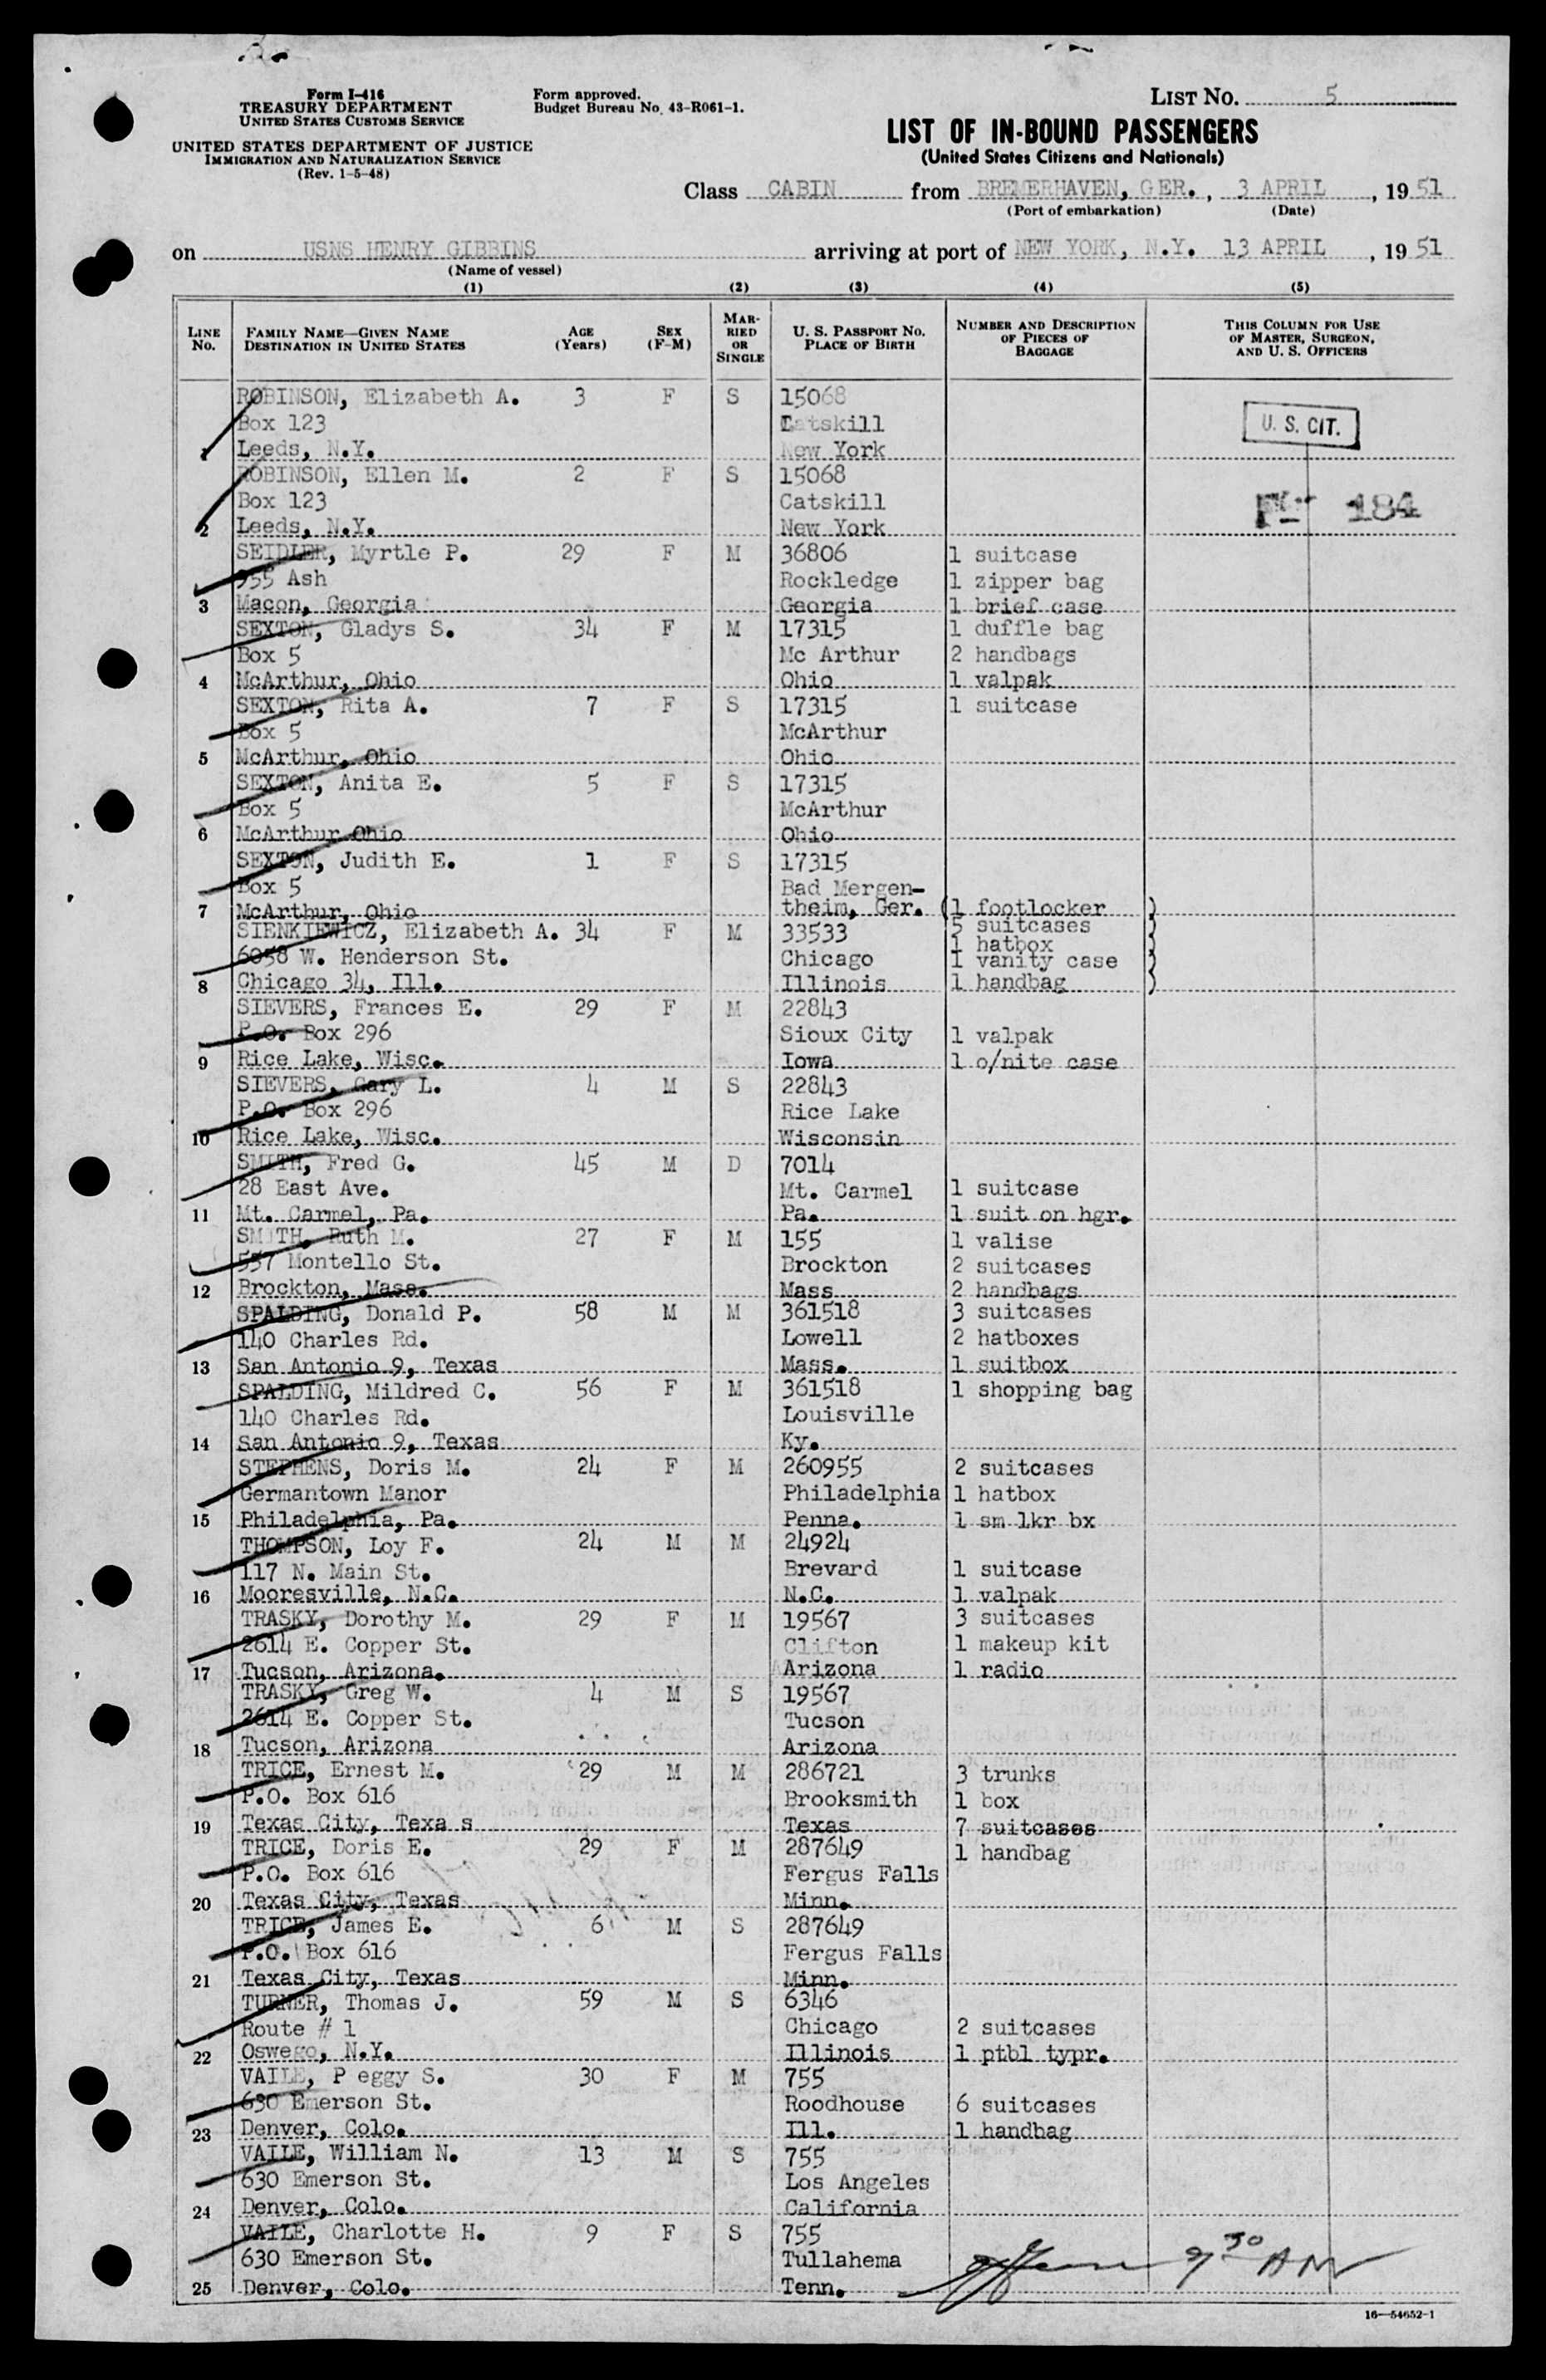 Form I-416
TREASURY DEPARTMENT
UNITED STATES CUSTOMS SERVICE
UNITED STATES DEPARTMENT OF JUSTICE
IMMIGRATION AND NATURALIZATION SERVICE
(Rev. 1-5-48)
Form approved.
Budget Bureau No. 43-R061-1.
LIST NO. 5
LIST OF IN-BOUND PASSENGERS
(United States Citizens and Nationals)
Class CABIN from BREMERHAVEN, GER., 3 APRIL, 1951
(Port of embarkation) (Date)
on USNS HENRY GIBBINS arriving at port of NEW YORK, N.Y. 13 APRIL, 1951
(Name of vessel)
(1) (2) (3) (4) (5)
LINE No. FAMILY NAME—GIVEN NAME DESTINATION IN UNITED STATES AGE (Years) SEX (F-M) MARRIED OR SINGLE U. S. PASSPORT NO. PLACE OF BIRTH NUMBER AND DESCRIPTION OF PIECES OF BAGGAGE THIS COLUMN FOR USE OF MASTER, SURGEON, AND U. S. OFFICERS
ROBINSON, Elizabeth A. 3 F S 15068
Box 123 Catskill U. S. CIT.
1 Leeds, N.Y. New York
ROBINSON, Ellen M. 2 F S 15068
Box 123 Catskill 184
2 Leeds, N.Y. New York
SEIDLER, Myrtle P. 29 F M 36806 1 suitcase
955 Ash Rockledge 1 zipper bag
3 Macon, Georgia Georgia 1 brief case
SEXTON, Gladys S. 34 F M 17315 1 duffle bag
Box 5 Mc Arthur 2 handbags
4 McArthur, Ohio Ohio 1 valpak
SEXTON, Rita A. 7 F S 17315 1 suitcase
Box 5 McArthur
5 McArthur, Ohio Ohio
SEXTON, Anita E. 5 F S 17315
Box 5 McArthur
6 McArthur Ohio Ohio
SEXTON, Judith E. 1 F S 17315
Box 5 Bad Mergen-
7 McArthur, Ohio theim, Ger. (1 footlocker )
SIENKIEWICZ, Elizabeth A. 34 F M 33533 5 suitcases )
1 hatbox )
6058 W. Henderson St. Chicago 1 vanity case )
8 Chicago 34, Ill. Illinois 1 handbag )
SIEVERS, Frances E. 29 F M 22843
P.O. Box 296 Sioux City 1 valpak
9 Rice Lake, Wisc. Iowa 1 o/nite case
SIEVERS, Gary L. 4 M S 22843
P.O. Box 296 Rice Lake
10 Rice Lake, Wisc. Wisconsin
SMITH, Fred G. 45 M D 7014
28 East Ave. Mt. Carmel 1 suitcase
11 Mt. Carmel, Pa. Pa. 1 suit on hgr.
SMITH, Ruth M. 27 F M 155 1 valise
557 Montello St. Brockton 2 suitcases
12 Brockton, Mass. Mass 2 handbags
SPALDING, Donald P. 58 M M 361518 3 suitcases
140 Charles Rd. Lowell 2 hatboxes
13 San Antonio 9, Texas Mass. 1 suitbox
SPALDING, Mildred C. 56 F M 361518 1 shopping bag
140 Charles Rd. Louisville
14 San Antonio 9, Texas Ky.
STEPHENS, Doris M. 24 F M 260955 2 suitcases
Germantown Manor Philadelphia 1 hatbox
15 Philadelphia, Pa. Penna. 1 sm lkr bx
THOMPSON, Loy F. 24 M M 24924
117 N. Main St. Brevard 1 suitcase
16 Mooresville, N.C. N.C. 1 valpak
TRASKY, Dorothy M. 29 F M 19567 3 suitcases
2614 E. Copper St. Clifton 1 makeup kit
17 Tucson, Arizona. Arizona 1 radio
TRASKY, Greg W. 4 M S 19567
2614 E. Copper St. Tucson
18 Tucson, Arizona Arizona
TRICE, Ernest M. 29 M M 286721 3 trunks
P.O. Box 616 Brooksmith 1 box
19 Texas City, Texa s Texas 7 suitcases
TRICE, Doris E. 29 F M 287649 1 handbag
P.O. Box 616 Fergus Falls
20 Texas City, Texas Minn.
TRICE, James E. 6 M S 287649
P.O. Box 616 Fergus Falls
21 Texas City, Texas Minn.
TURNER, Thomas J. 59 M S 6346
Route # 1 Chicago 2 suitcases
22 Oswego, N.Y. Illinois 1 ptbl typr.
VAILE, P eggy S. 30 F M 755
630 Emerson St. Roodhouse 6 suitcases
23 Denver, Colo. Ill. 1 handbag
VAILE, William N. 13 M S 755
630 Emerson St. Los Angeles
24 Denver, Colo. California
VAILE, Charlotte H. 9 F S 755
630 Emerson St. Tullahema 9 30 AM
25 Denver, Colo. Tenn.
16—54652-1